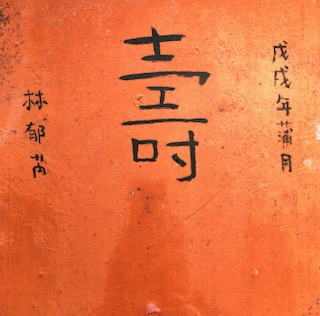 戊戌年蒲月
壽
林郁芮